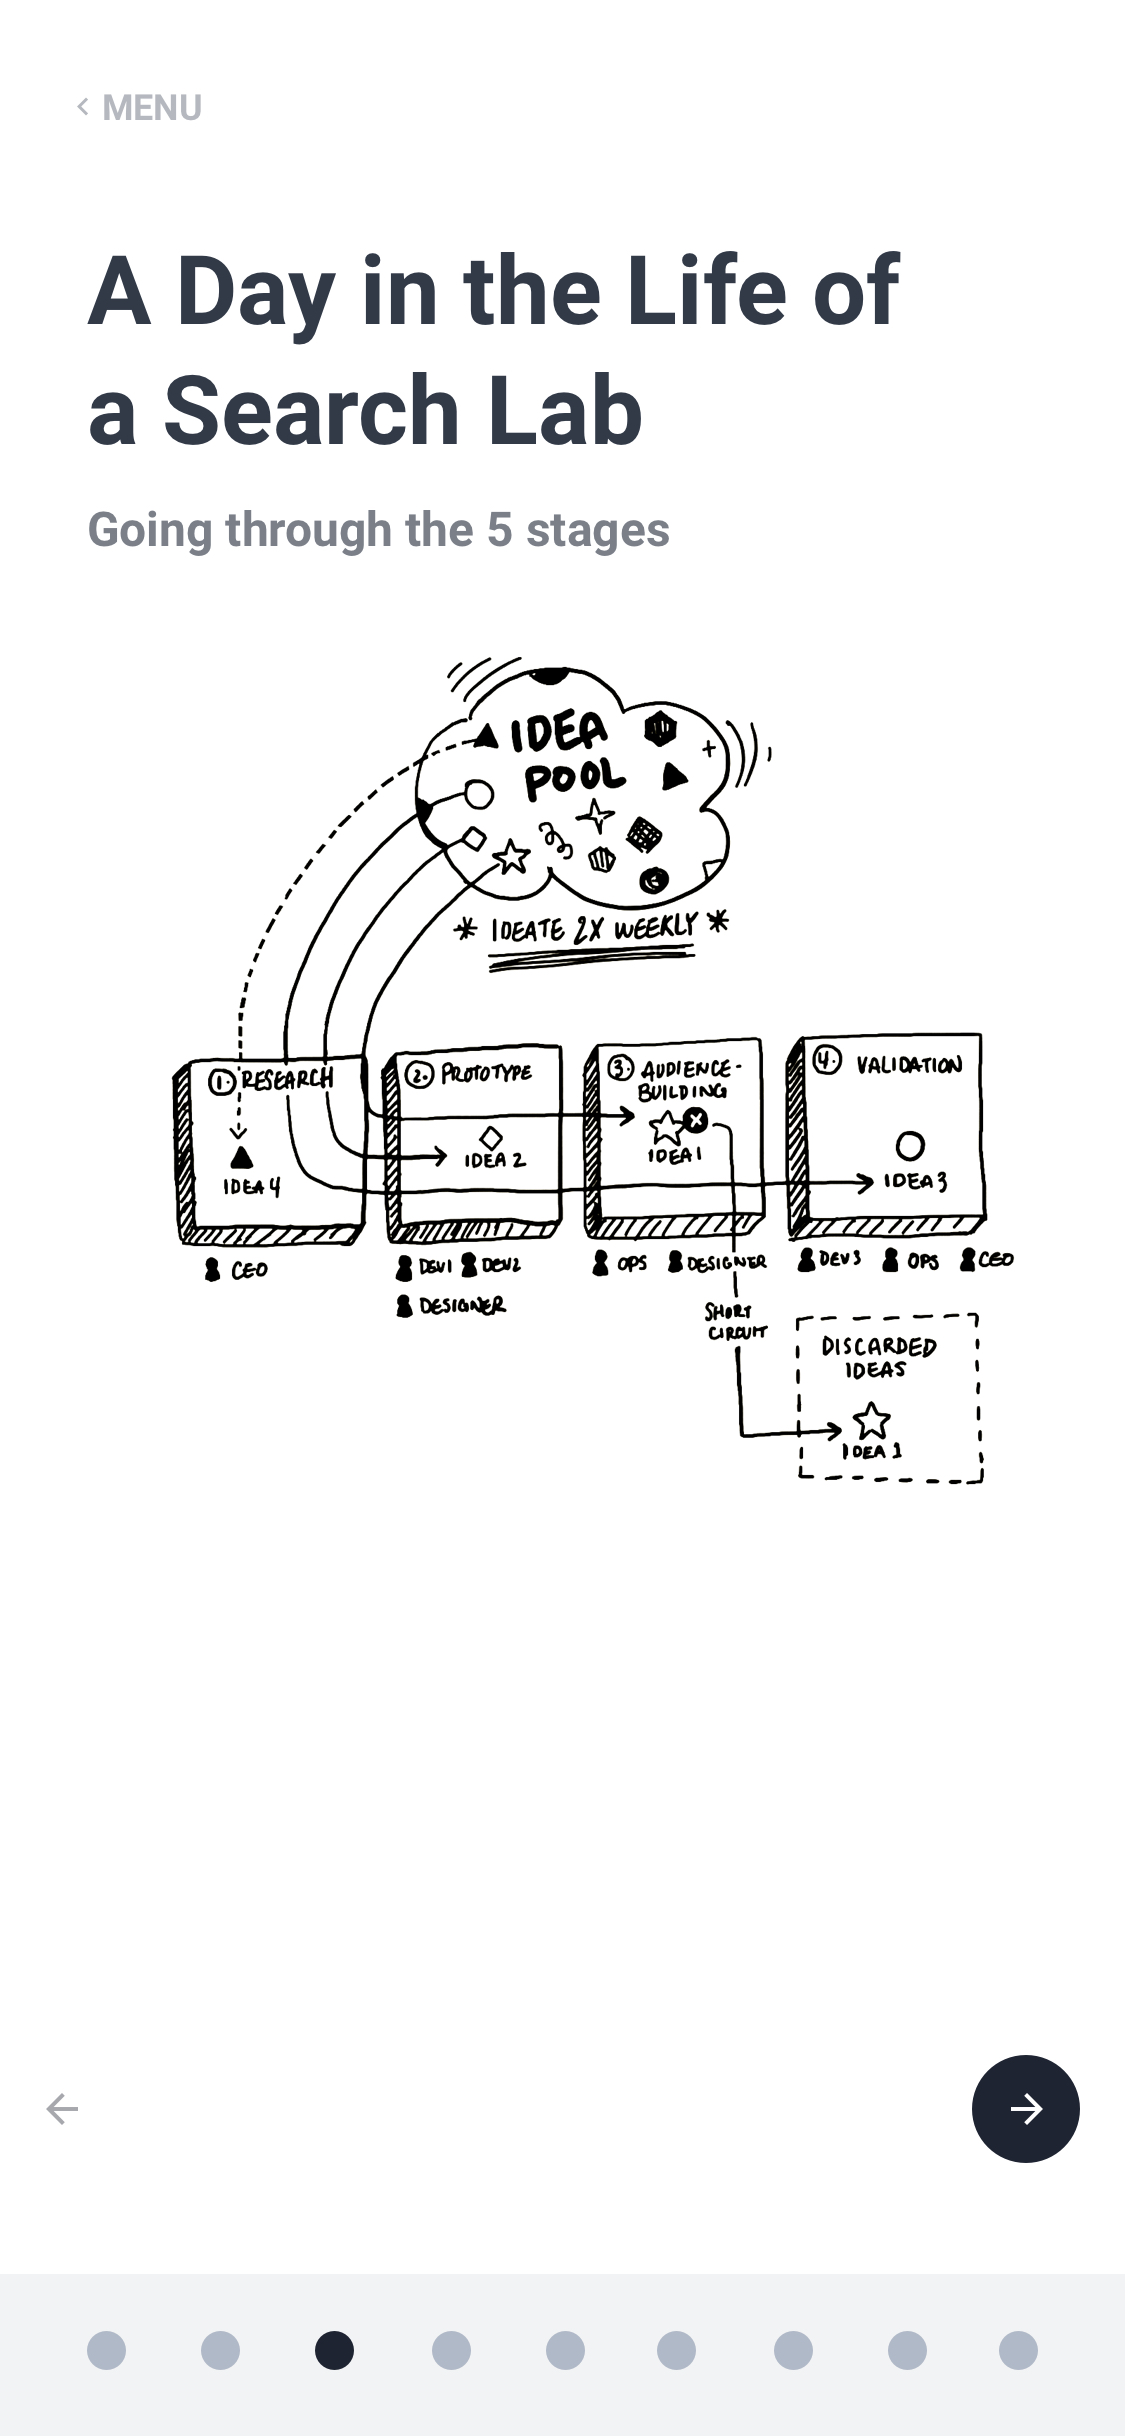 MENU
A Day in the Life of
a Search Lab
Going through the 5 stages
IDEA
POOL
* IDEATE 2X WEEKLY *
1. RESEARCH
IDEA 4
CEO
2. PROTOTYPE
IDEA 2
DEV1 DEV2
DESIGNER
3. AUDIENCE-
BUILDING
IDEA 1
OPS DESIGNER
4. VALIDATION
IDEA 3
DEV3 OPS CEO
SHORT
CIRCUIT
DISCARDED
IDEAS
IDEA 1